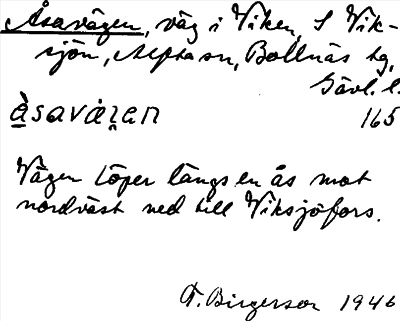 Åsavägen, väg i Viken, S Vik-
sjön, Alfta sn, Bollnäs tg,
Gävl. l.
àsavàgan 165
Vägen löper längs en ås mot
nordväst ned till Viksjöfors.
F. Birgerson 1946